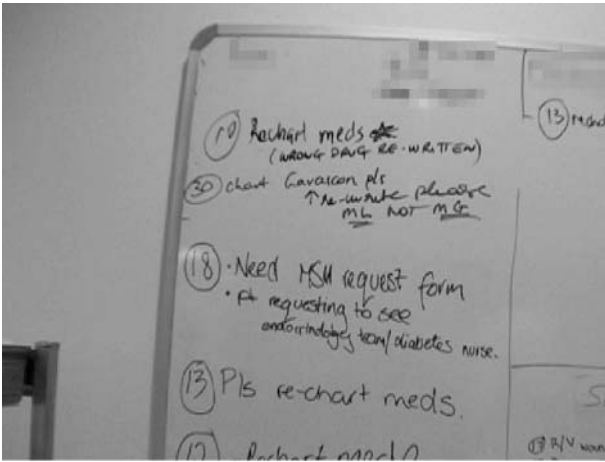 10 Rechart meds
(WRONG DRUG RE-WRITTEN)
30 chart Gavascon pls
↑ re-write please
ML NOT MG
18 • Need MSU request form
• Pt requesting to see
endocrinology team/diabetes nurse.
13 Pls re-chart meds.
Rechart meds
13
R/V